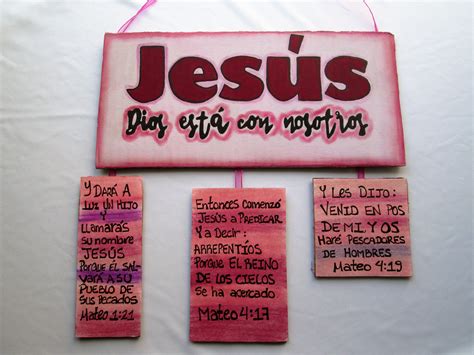 Jesús
Dios está con nosotros
Y DARÁ A
LUZ UN HIJO
Y
LLAMARÁS
SU NOMBRE
JESÚS
PORQUE ÉL SAL-
VARÁ A SU
PUEBLO DE
SUS PECADOS
Mateo 1:21
Entonces comenzó
JESÚS a PREDICAR
Y a Decir:
ARREPENTÍOS
PORQUE EL REINO
DE LOS CIELOS
Se ha acercado
Mateo 4:17
Y LES DIJO:
VENID EN POS
DE MI Y OS
HARÉ PESCADORES
DE HOMBRES
Mateo 4:19